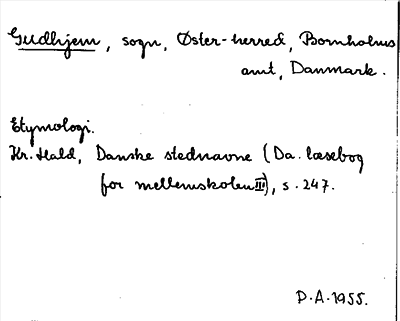 Gudhjem, sogn, Øster-herred, Bornholms
amt, Danmark.
Etymologi.
Kr. Hald, Danske stednavne (Da. læsebog
for mellemskolen III), s. 247.
P.A. 1955.